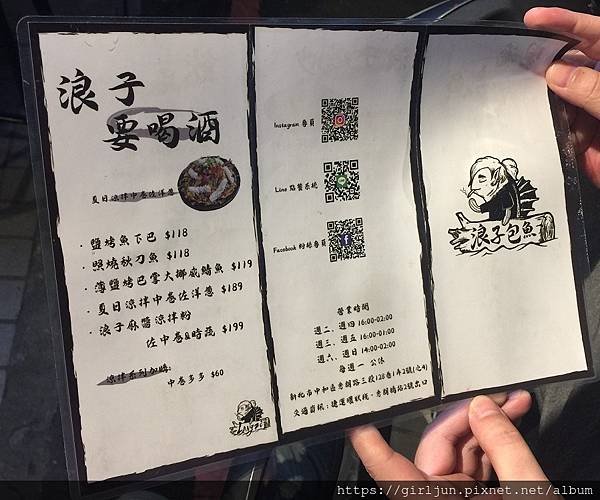 浪子
要喝酒
夏日涼拌中卷佐洋蔥
· 鹽烤魚下巴 $118
· 照燒秋刀魚 $118
· 薄鹽烤巴掌大挪威鯖魚 $119
· 夏日涼拌中卷佐洋蔥 $189
· 浪子麻醬涼拌粉
佐中卷&時蔬 $199
涼拌系列加購:
中卷多多 $60
Instagram 專頁
Line 點餐系統
Facebook 粉絲專頁
營業時間
週二、週四 16:00-02:00
週三、週五 16:00-01:00
週六、週日 14:00-02:00
每週一 公休
新北市中和區景新路三段128巷1弄2號(之4)
交通資訊:捷運環狀線 - 景新路站2號出口
浪子包魚
https://girljun.pixnet.net/album